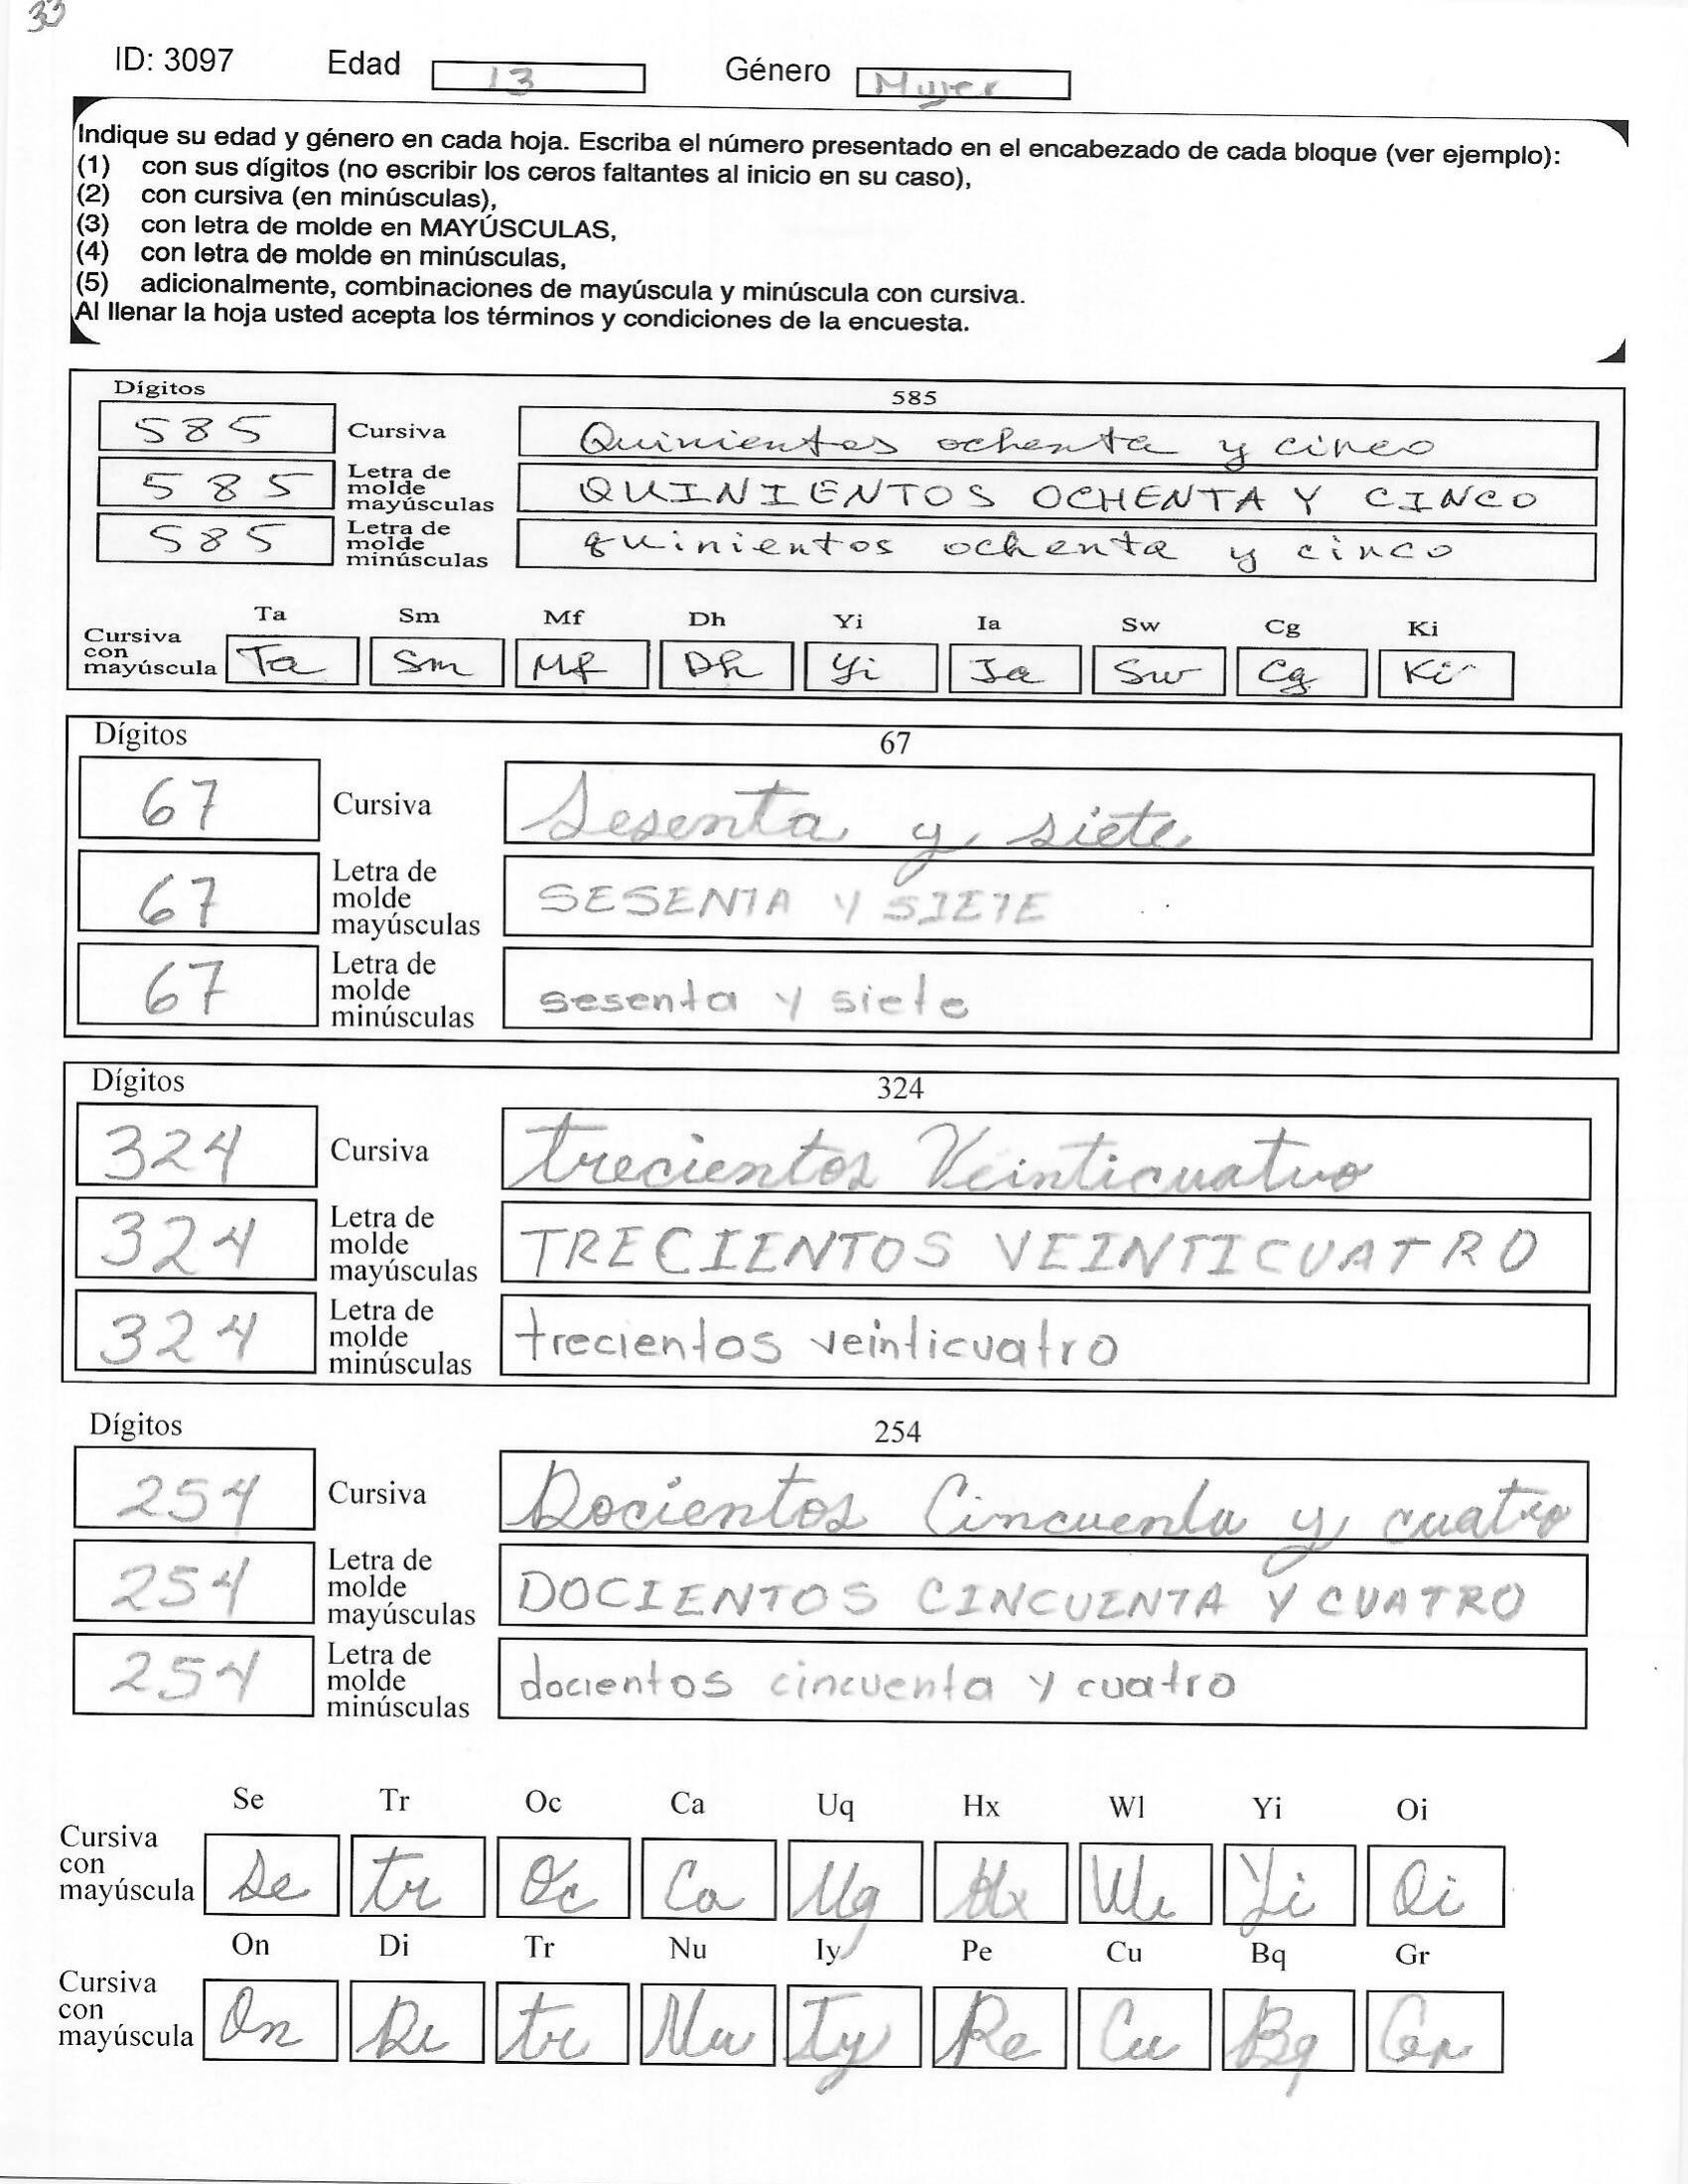 33
ID: 3097 Edad 13 Género Mujer
Indique su edad y género en cada hoja. Escriba el número presentado en el encabezado de cada bloque (ver ejemplo):
(1) con sus dígitos (no escribir los ceros faltantes al inicio en su caso),
(2) con cursiva (en minúsculas),
(3) con letra de molde en MAYÚSCULAS,
(4) con letra de molde en minúsculas,
(5) adicionalmente, combinaciones de mayúscula y minúscula con cursiva.
Al llenar la hoja usted acepta los términos y condiciones de la encuesta.
Dígitos 585
585 Cursiva Quinientos ochenta y cinco
585 Letra de molde mayúsculas QUINIENTOS OCHENTA Y CINCO
585 Letra de molde minúsculas quinientos ochenta y cinco
Ta Sm Mf Dh Yi Ia Sw Cg Ki
Cursiva con mayúscula Ta Sm Mf Dh Yi Ia Sw Cg Ki
Dígitos 67
67 Cursiva Sesenta y siete
67 Letra de molde mayúsculas SESENTA Y SIETE
67 Letra de molde minúsculas sesenta y siete
Dígitos 324
324 Cursiva trecientos Veinticuatro
324 Letra de molde mayúsculas TRECIENTOS VEINTICUATRO
324 Letra de molde minúsculas trecientos veinticuatro
Dígitos 254
254 Cursiva Docientos Cincuenta y cuatro
254 Letra de molde mayúsculas DOCIENTOS CINCUENTA Y CUATRO
254 Letra de molde minúsculas docientos cincuenta y cuatro
Se Tr Oc Ca Uq Hx Wl Yi Oi
Cursiva con mayúscula Se tr Oc Ca Uq Hx Wl Yi Oi
On Di Tr Nu Iy Pe Cu Bq Gr
Cursiva con mayúscula On Di tr Nu Iy Pe Cu Bq Gr